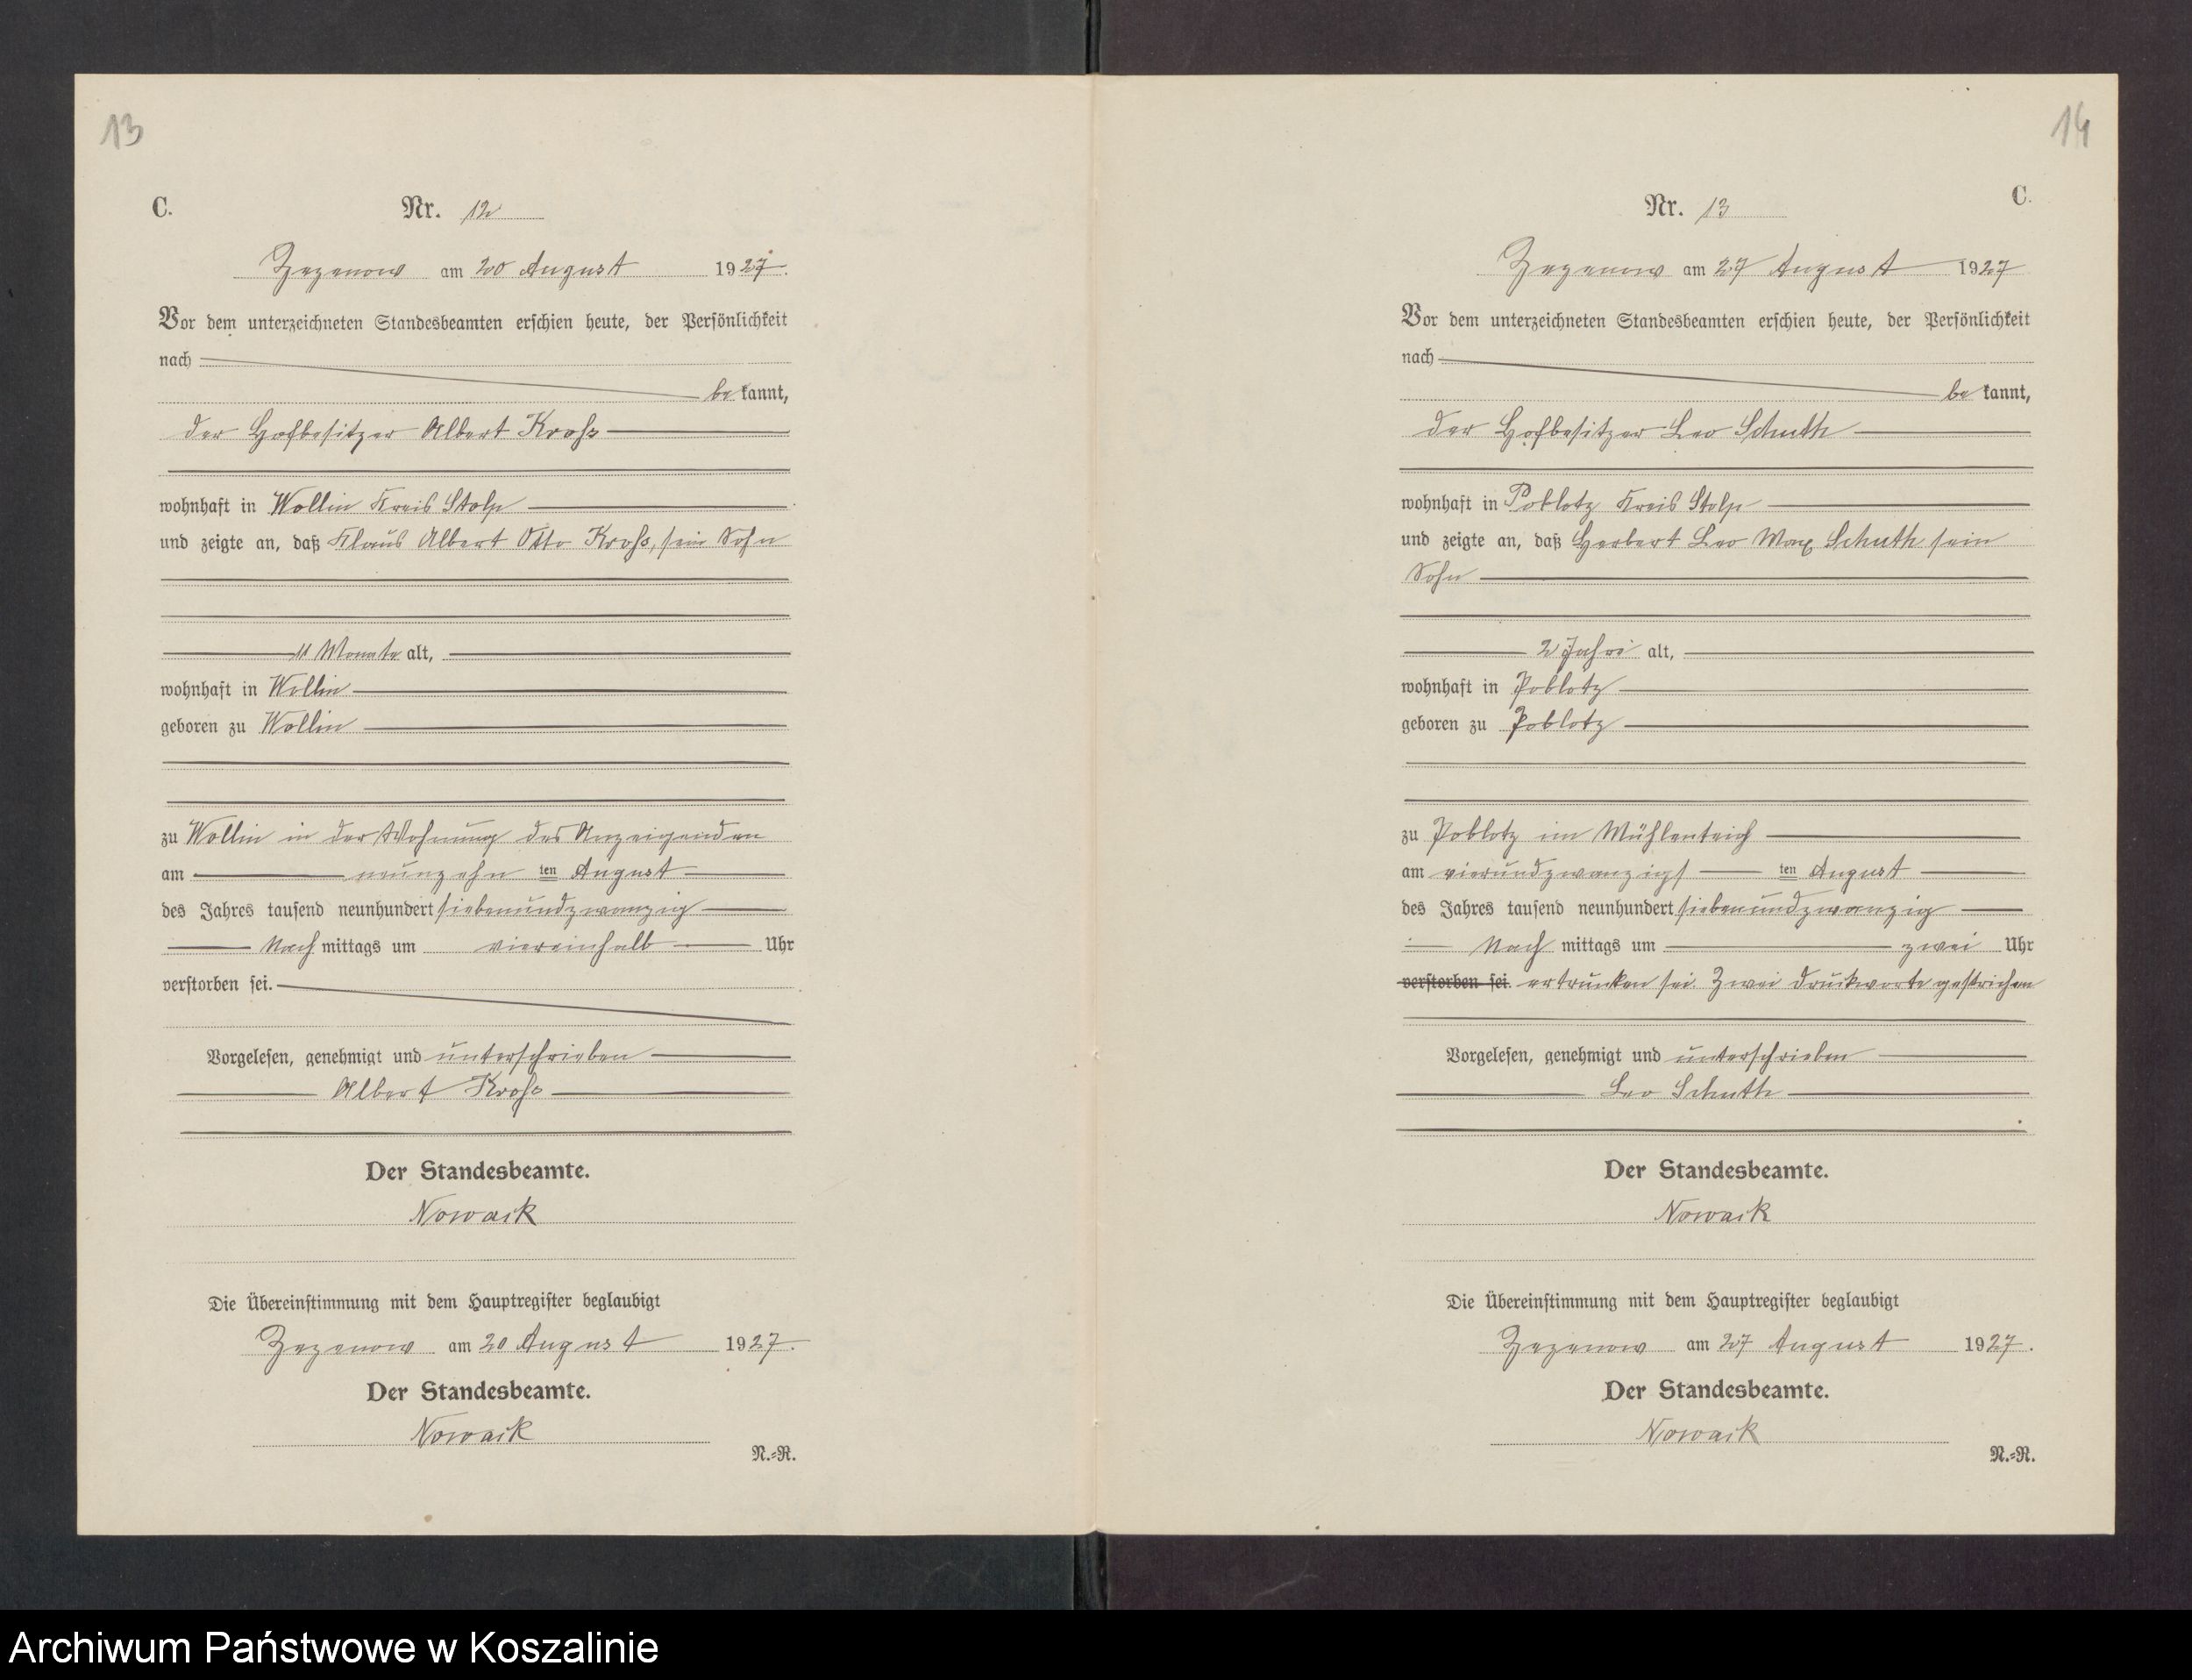 13
C.
Nr. 12
Zezenow am 20 August 1927.
Vor dem unterzeichneten Standesbeamten erschien heute, der Persönlichkeit
nach
bekannt,
der Hofbesitzer Albert Kroß
wohnhaft in Wollin Kreis Stolp
und zeigte an, daß Klaus Albert Otto Kroß, sein Sohn
11 Monate alt,
wohnhaft in Wollin
geboren zu Wollin
zu Wollin in der Wohnung des Anzeigenden
am neunzehn ten August
des Jahres tausend neunhundert siebenundzwanzig
Nachmittags um viereinhalb Uhr
verstorben sei.
Vorgelesen, genehmigt und unterschrieben
Albert Kroß
Der Standesbeamte.
Nowack
Die Übereinstimmung mit dem Hauptregister beglaubigt
Zezenow am 20 August 1927.
Der Standesbeamte.
Nowack
N.=R.
14
C.
Nr. 13
Zezenow am 27 August 1927
Vor dem unterzeichneten Standesbeamten erschien heute, der Persönlichkeit
nach
bekannt,
der Hofbesitzer Leo Schuth
wohnhaft in Poblotz Kreis Stolp
und zeigte an, daß Herbert Leo Max Schuth sein
Sohn
2 Jahre alt,
wohnhaft in Poblotz
geboren zu Poblotz
zu Poblotz im Mühlenteich
am vierundzwanzigs ten August
des Jahres tausend neunhundert siebenundzwanzig
Nach mittags um zwei Uhr
verstorben sei. ertrunken sei. Zwei Druckworte gestrichen
Vorgelesen, genehmigt und unterschrieben
Leo Schuth
Der Standesbeamte.
Nowack
Die Übereinstimmung mit dem Hauptregister beglaubigt
Zezenow am 27 August 1927.
Der Standesbeamte.
Nowack
N.=R.
Archiwum Państwowe w Koszalinie